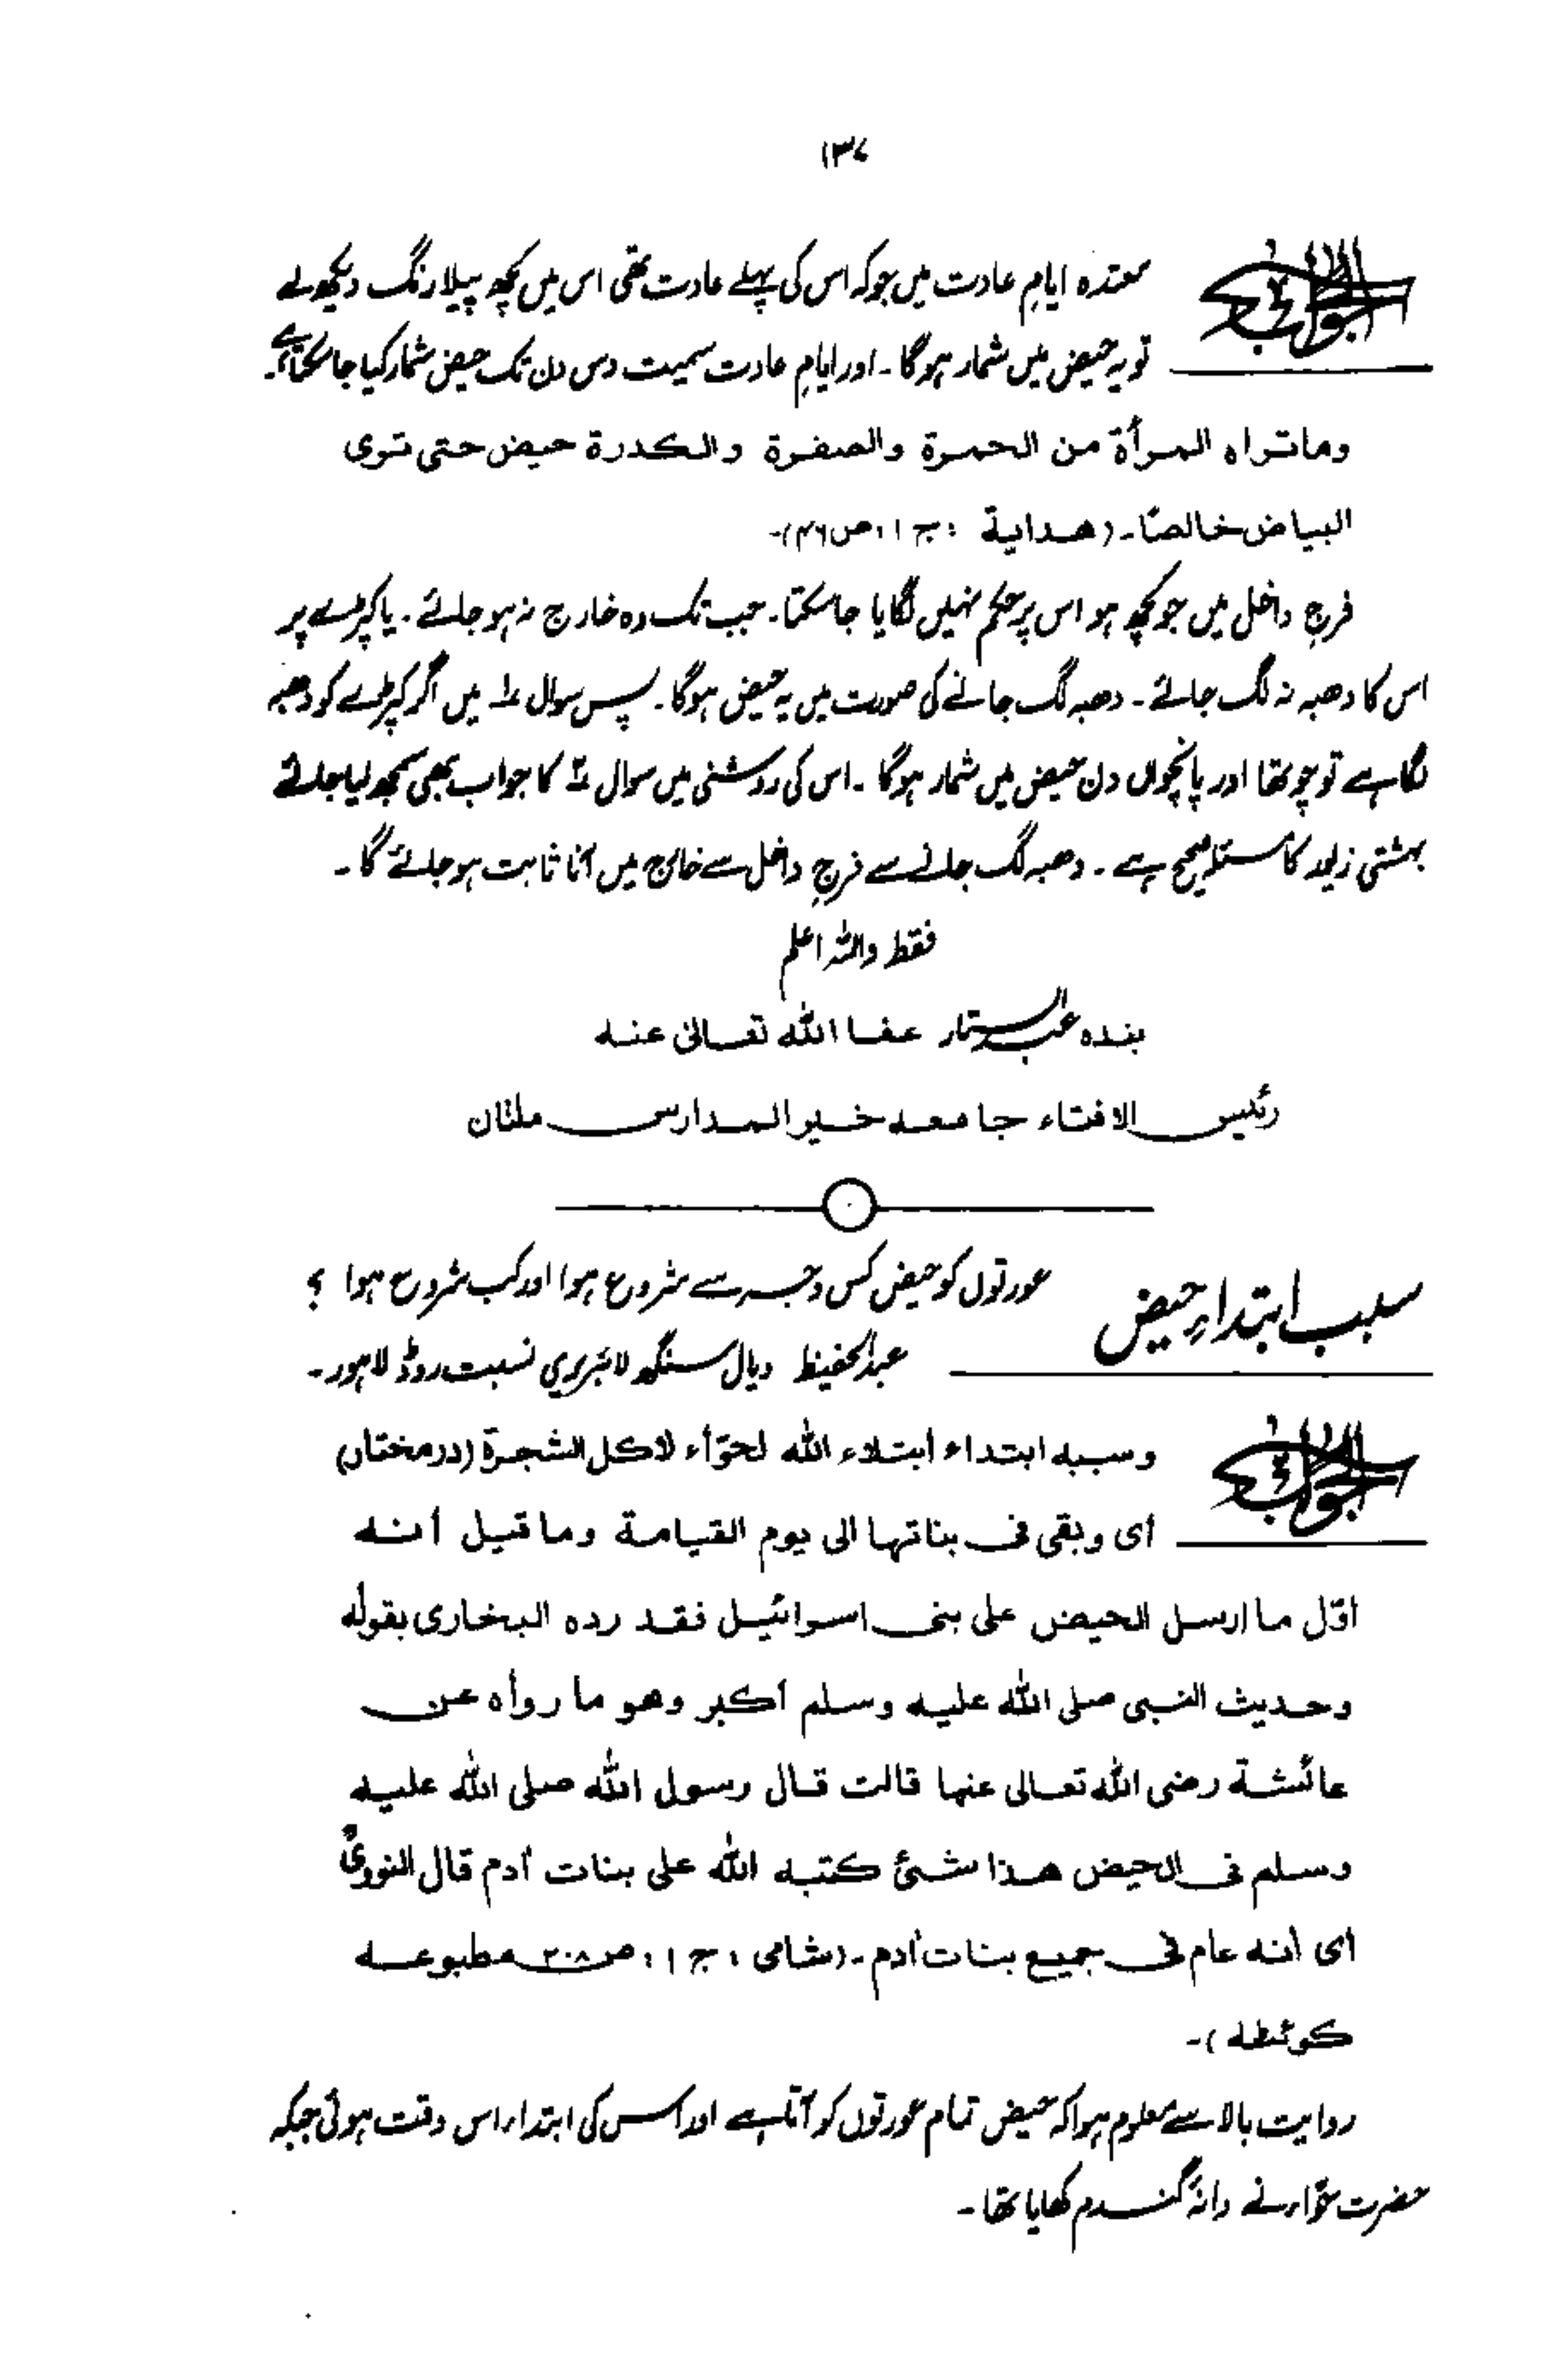 ۱۳۷
الجواب معتدہ ایامِ عادت میں جو کہ اس کی پہلے عادت تھی اس میں کچھ پیلا رنگ دیکھ لے
تو یہ حیض میں شمار ہوگا۔ اور ایامِ عادت سمیت دس دن تک حیض شمار کیا جا سکتا ہے۔
وماتراه المرأة من الحمرة والصفرة والكدرة حيض حتى ترى
البياض خالصًا۔ (هداية : ج ۱ ؛ ص ۴۶)۔
فرجِ داخل میں جو کچھ ہو اس پر حکم نہیں لگایا جا سکتا۔ جب تک وہ خارج نہ ہو جائے۔ یا کپڑے پر
اس کا دھبہ نہ لگ جائے۔ دھبہ لگ جانے کی صورت میں یہ حیض ہوگا۔ پس سوال ۱ میں اگر کپڑے کو دھبہ
لگا ہے تو چوتھا اور پانچواں دن حیض میں شمار ہوگا۔ اس کی روشنی میں سوال کا جواب بھی سمجھ لیا جائے
بہشتی زیور کا مسئلہ صحیح ہے۔ دھبہ لگ جانے سے فرجِ داخل سے خارج میں آنا ثابت ہو جائے گا۔
فقط واللہ اعلم
بندہ عبدالستار عفا اللہ تعالیٰ عنہ
رئیس الافتاء جامعہ خیر المدارس ملتان
سبب ابتداءِ حیض عورتوں کو حیض کس وجہ سے شروع ہوا اور کب شروع ہوا ؟
عبدالحفیظ دیال سنگھ لائبریری نسبت روڈ لاہور۔
الجواب وسببه ابتداء أبتلاء الله لحوّأء لاكل الشجرة (درمختار)
أى وبقى فى بناتها الى يوم القيامة وماقيل أنه
اوّل ما ارسل الحيض على بنى اسرائيل فقد رده البخارى بقوله
وحديث النبى صلى الله عليه وسلم أكبر وهو ما رواه عن
عائشة رضى الله تعالى عنها قالت قال رسول الله صلى الله عليه
وسلم فى الحيض هذا شئ كتبه الله على بنات أدم قال النووىؒ
اى انه عام فى جميع بنات أدم۔ (شامى ؛ ج ۱ ؛ ص ۲۰۸ مطبوعه
كوئٹہ)۔
روایت بالا سے معلوم ہوا کہ حیض تمام عورتوں کو آتا ہے اور اس کی ابتداء اس وقت ہوئی جبکہ
حضرت حوّاء نے دانۂ گندم کھایا تھا۔